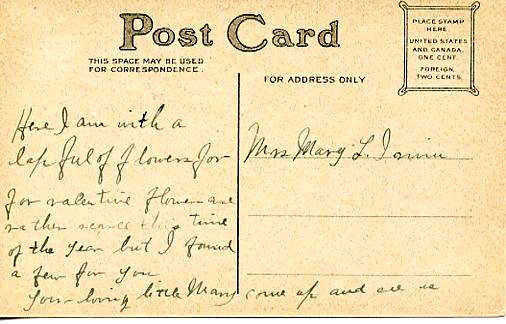 Post Card
THIS SPACE MAY BE USED
FOR CORRESPONDENCE.
FOR ADDRESS ONLY
PLACE STAMP
HERE
UNITED STATES
AND CANADA,
ONE CENT.
FOREIGN,
TWO CENTS.
Here I am with a
lap ful of flowers for
for valentine flowers are
rather scarce this time
of the year but I found
a few for you
Your loving little Mary come up and see us
Mrs Mary L. Irwin